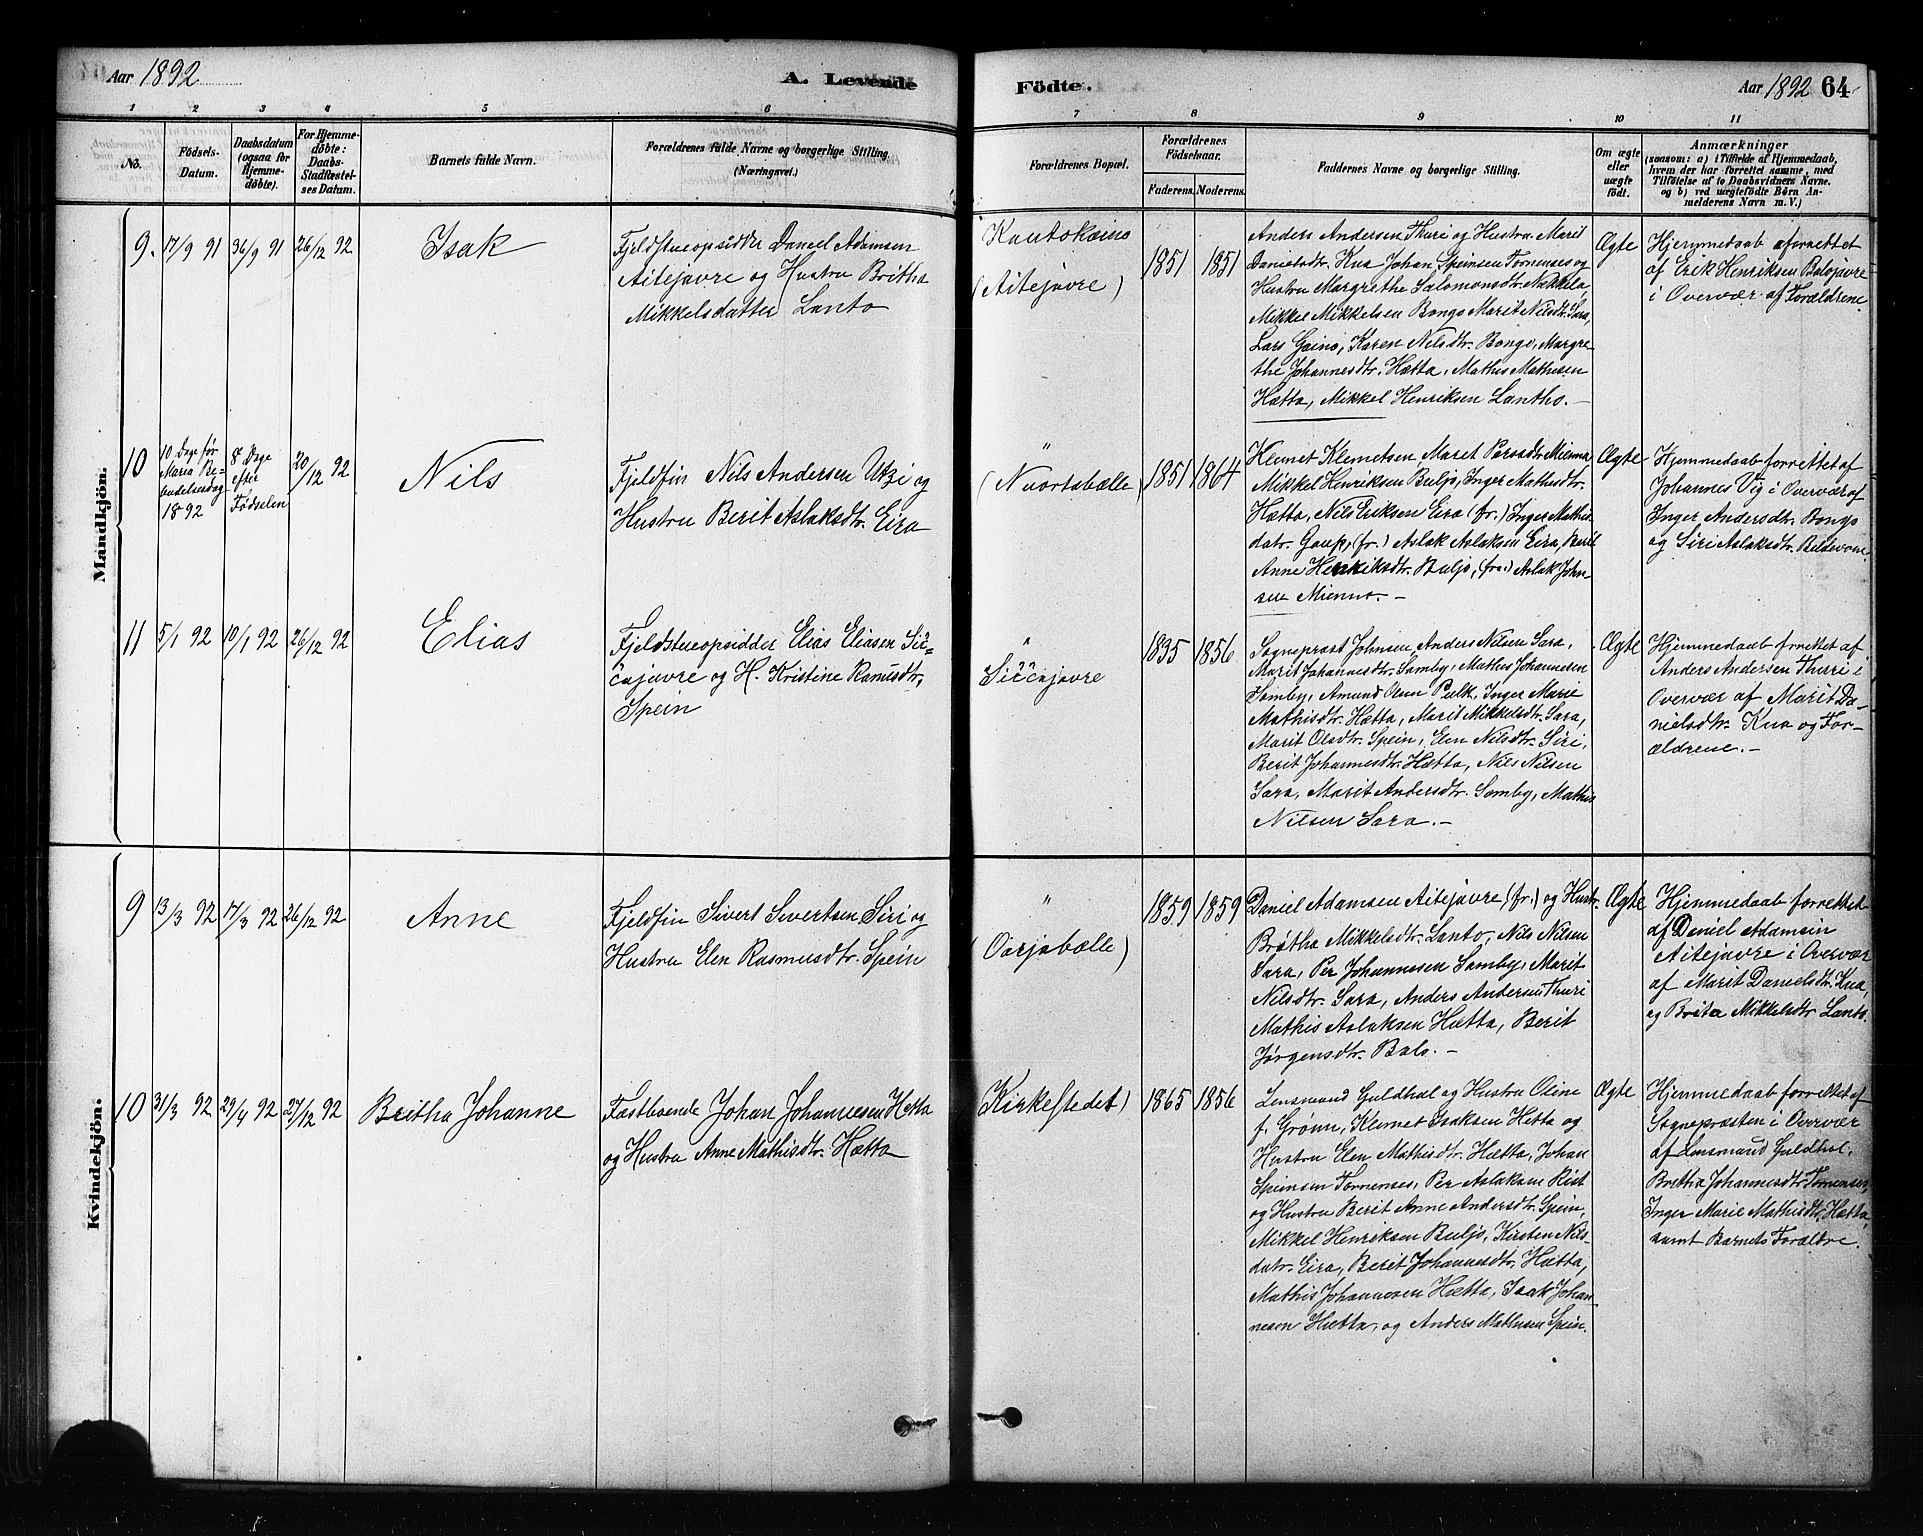 Aar 1892
A. Levende
Födte.
Aar 1892 64
1 2 3 4 5 6 7 8 9 10 11
No.
Födsels-
Datum.
Daabsdatum
(ogsaa för
Hjemme-
döbte).
For Hjemme-
döbte:
Daabs-
Stadfæstel-
ses Datum.
Barnets fulde Navn.
Forældrenes fulde Navne og borgerlige Stilling.
(Næringsvei.)
Forældrenes Bopæl.
Forældrenes
Födselsaar.
Faderens. Moderens.
Faddernes Navne og borgerlige Stilling.
Om ægte
eller
uægte
födt.
Anmærkninger
(saasom: a) i Tilfælde af Hjemmedaab,
hvem der har forrettet samme, med
Tilföielse af to Daabsvidners Navne.
og b) ved uægtefödte Börn An-
melderens Navn m. V.)
Mandkjön.
9. 17/9 91 26/9 91 26/12 92
Isak
Fjeldstueopsidder Daniel Adamsen
Aitejavre og Hustru Britha
Mikkelsdatter Lanto
Kautokeino
(Aitejavre)
1851 1851
Anders Andersen Thuri og Hustru Marit
Danielsdtr. Kua Johan Speinsen Tornenses og
Hustru Margrethe Salomonsdtr. Nækkela,
Mikkel Mikkelsen Bongo Marit Nilsdtr. Sara,
Lars Gaino, Karen Nilsdtr. Bongo, Margre-
the Johannesdtr. Hætta, Mathis Mathisen
Hætta, Mikkel Henriksen Lantho. —
Ægte
Hjemmedaab aforrettet
af Erik Henriksen Balojavre
i Overvær af Forældrene
10
10 Dage før
Maria Be-
budelsesdag
1892
8 Dage
efter
Fødselen
20/12 92
Nils
Fjeldfin Nils Andersen Utzi og
Hustru Berit Aslaksdtr. Eira
"
(Nuortabælle)
1851 1864
Klemet Klemetsen Marit Persdtr. Mienna,
Mikkel Henriksen Buljo, Inger Mathisdtr.
Hætta, Nils Eriksen Eira (fr.) Inger Mathis-
datr. Gaup, (fr.) Aslak Aslaksen Eira, Berit
Anne Henriksdtr. Buljo, (fr.) Aslak John-
sen Mienna. —
Ægte
Hjemmedaab forrettet af
Johannes Vig i Overvær af
Inger Andersdtr. Bongo
og Siri Aslaksdtr.
11 5/1 92 10/1 92 26/12 92
Elias
Fjeldstueopsidder Elias Eliasen Sič-
čajavre og H. Kristine Rasmusdtr.
Spein
"
Siččajavre
1835 1856
Sogneprest Johnsen, Anders Nilsen Sara,
Marit Johannesdtr. Somby, Mathis Johannesen
Somby, Amund Olsen Pulk, Inger Marie
Mathisdtr. Hætta, Marit Mikkelsdtr. Sara,
Marit Olsdtr. Spein, Elen Nilsdtr. Siri,
Berit Johannesdtr. Hætta, Nils Nilsen
Sara, Marit Andersdtr. Somby, Mathis
Nilsen Sara. —
Ægte
Hjemmedaab forrettet af
Anders Andersen Thuri i
Overvær af Marit Da-
nielsdtr. Kua og For-
ældrene. —
Kvindekjön.
9 13/3 92 17/3 92 26/12 92
Anne
Fjeldfin Sivert Sivertsen Siri og
Hustru Elen Rasmusdtr. Spein
"
(Oarjabælle)
1859 1859
Daniel Adamsen Aitejavre (fr.) og Hustr.
Brita Mikkelsdtr. Lanto, Nils Nilsen
Sara, Per Johannesen Somby, Marit
Nilsdtr. Sara, Anders Andersen Thuri
Mathis Aslaksen Hætta, Berit
Jørgensdtr. Balo. —
Ægte
Hjemmedaab forrettet
af Daniel Adamsen
Aitejavre i Overvær
af Marit Danielsdtr. Kua,
og Brita Mikkelsdtr Lanto.
10 31/3 92 29/4 92 27/12 92
Britha Johanne
Fastboende Johan Johannesen Hætta
og Hustru Anne Mathisdtr. Hætta
Kirkestedet)
1865 1856
Lensmand Guldhal og Hustru Oline
f. Grønn, Klemet Isaksen Hetta og
Hustru Elen Mathisdtr. Hætta, Johan
Speinsen Tornenses, Per Aslaksen Rist
og Hustru Berit Anne Andersdtr. Spein,
Mikkel Henriksen Buljo, Kirsten Nils-
datr. Eira, Berit Johannesdtr. Hætta,
Mathis Johannesen Hætta, Isak Johan-
nesen Hætta, og Anders Mathisen Spein.
Ægte
Hjemmedaab forrettet af
Sognepræsten i Overvær
af Lensmand Guldhal,
Britha Johannesdtr. Tornenses,
Inger Marie Mathisdtr. Hætta,
samt Barnets Forældre.